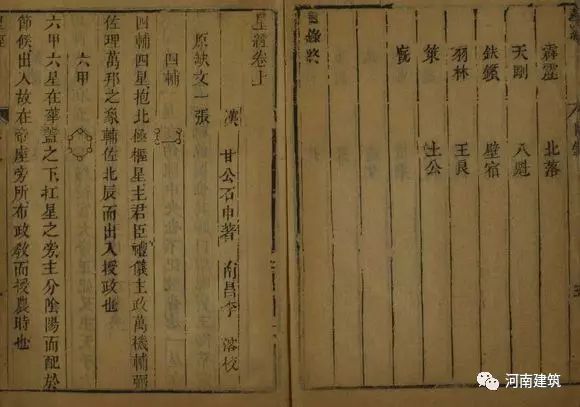 霹靂 北落
天剛 八魁
鈇鑕 壁宿
羽林 王良
策 土公
目錄終
星經卷上
漢 甘公石申著 南昌李 校
原缺文一張
四輔
四輔四星抱北極樞星主君臣禮儀主政萬機輔弼
佐理萬邦之象輔佐北辰而出入授政也
六甲
六甲六星在華蓋之下杠星之旁主分陰陽而配於
節候出入故在帝座旁所布政教而授農時也
河南建筑